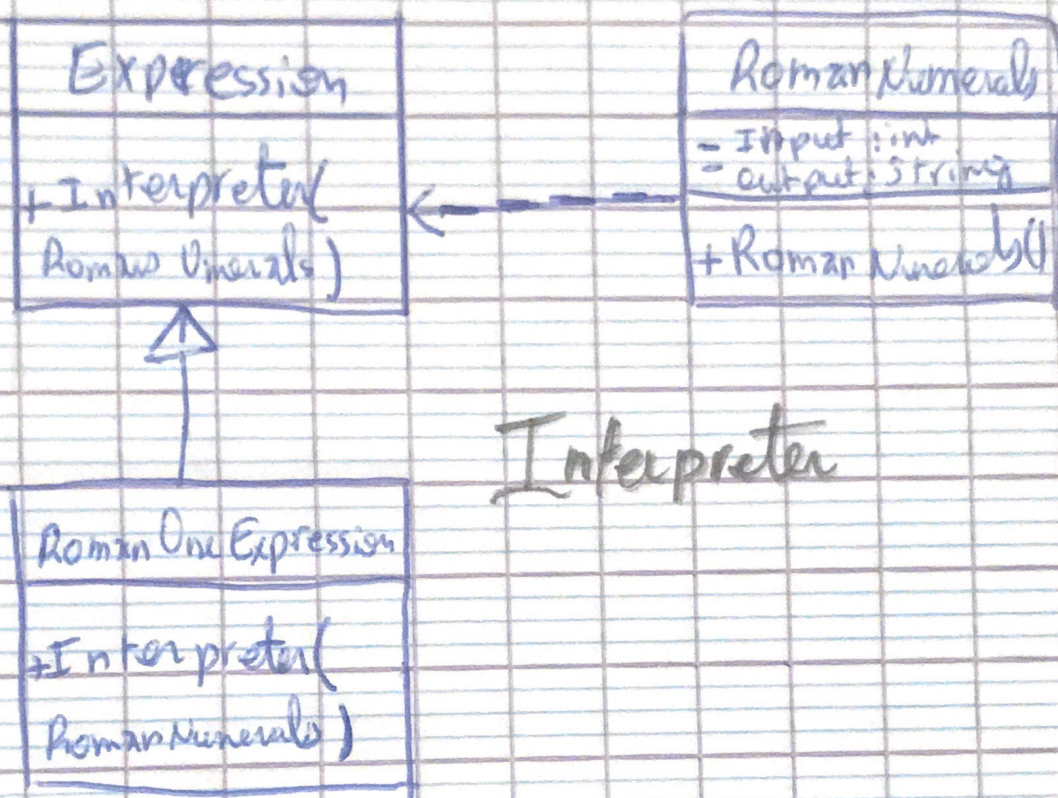 Expression
+Interpreter(
Romans Umerals)
Roman Numerals
- Input : int
- output : string
+Roman Numerals()
Interpreter
Roman One Expression
+Interpreter(
Roman Numerals)